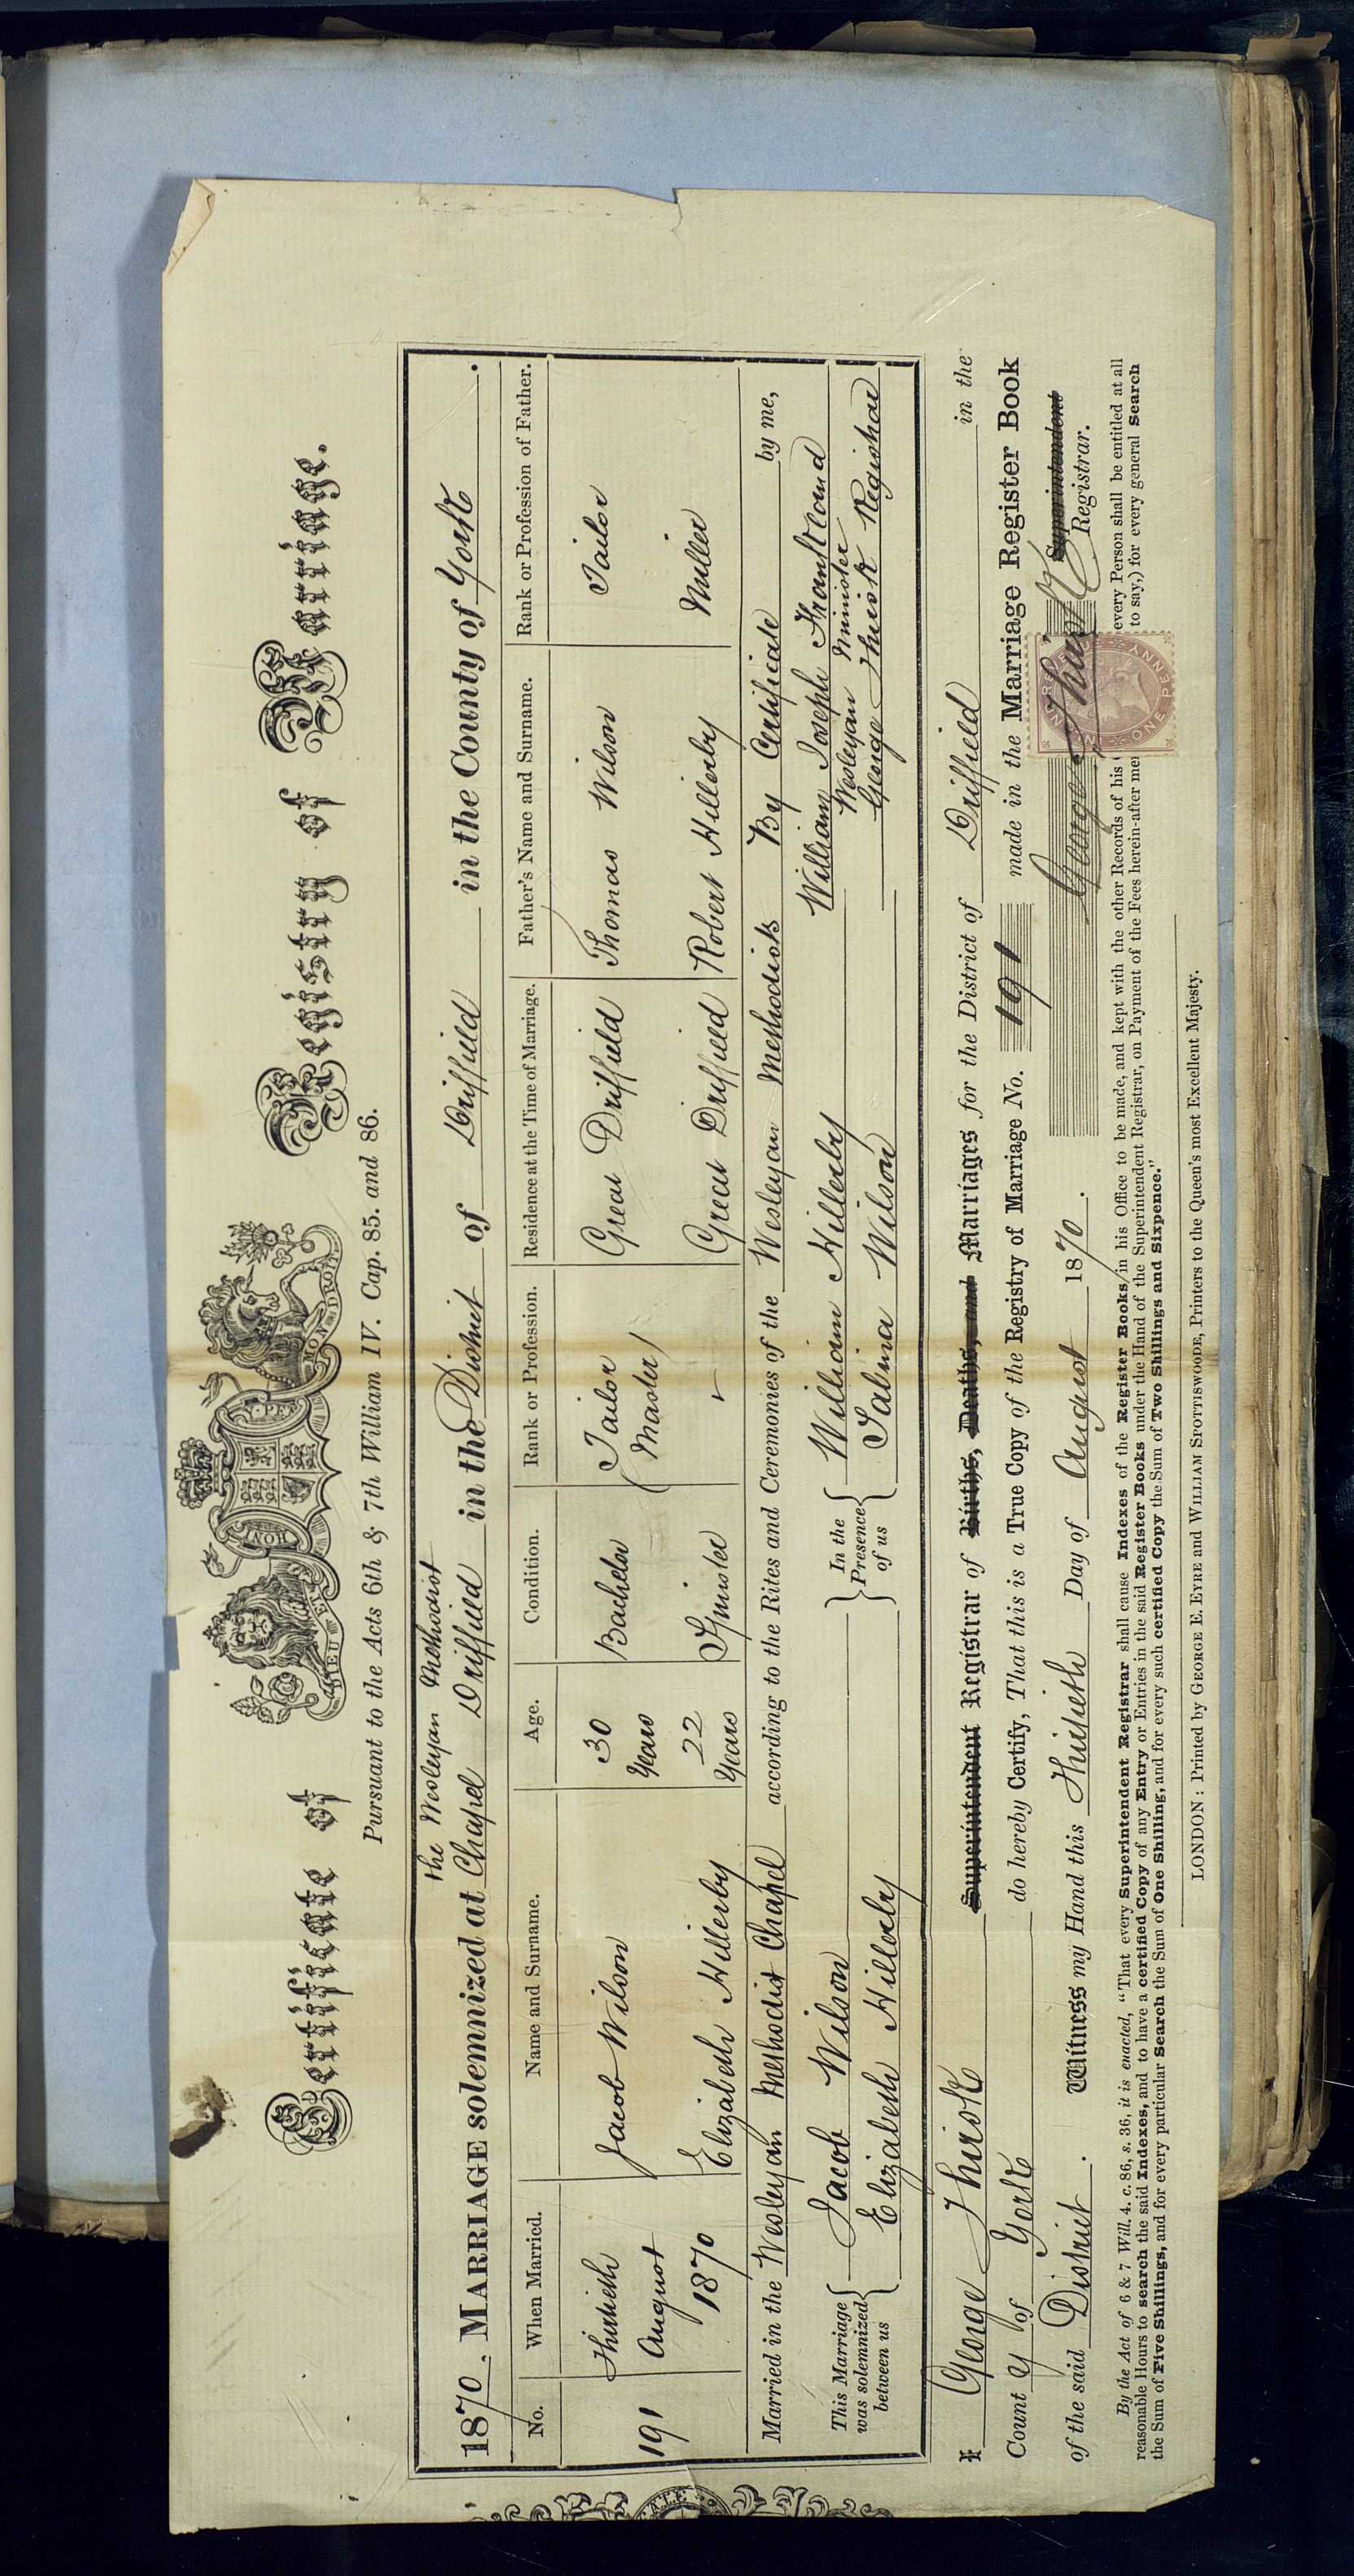 Certificate of Registry of Marriage.
DIEU ET MON DROIT
HONI Y PEN
Pursuant to the Acts 6th & 7th William IV. Cap. 85. and 86.
the Wesleyan Methodist
1870. MARRIAGE solemnized at Chapel Driffield in the District of Driffield in the County of York.
No. When Married. Name and Surname. Age. Condition. Rank or Profession. Residence at the Time of Marriage. Father's Name and Surname. Rank or Profession of Father.
191 Thirtieth August 1870 Jacob Wilson 30 Years Bachelor Tailor (Master) Great Driffield Thomas Wilson Tailor
Elizabeth Hillerby 22 Years Spinster Great Driffield Robert Hillerby Miller
Married in the Wesleyan Methodist Chapel according to the Rites and Ceremonies of the Wesleyan Methodists By Certificate by me,
This Marriage was solemnized between us { Jacob Wilson } In the Presence of us { William Hillerby William Joseph Frankland
Wesleyan Minister
Elizabeth Hillerby Salina Wilson George Thirsk Registrar
I George Thirsk Superintendent Registrar of Births, Deaths, and Marriages for the District of Driffield in the
Count y of York do hereby Certify, That this is a True Copy of the Registry of Marriage No. 191 made in the Marriage Register Book
of the said District. Witness my Hand this Thirtieth Day of August 1870. George Thirsk Superintendent Registrar.
INLAND REVENUE ONE PENNY
By the Act of 6 & 7 Will. 4. c. 86, s. 36, it is enacted, "That every Superintendent Registrar shall cause Indexes of the Register Books in his Office to be made, and kept with the other Records of his every Person shall be entitled at all
reasonable Hours to search the said Indexes, and to have a certified Copy of any Entry or Entries in the said Register Books under the Hand of the Superintendent Registrar, on Payment of the Fees herein-after me to say,) for every general Search
the Sum of Five Shillings, and for every particular Search the Sum of One Shilling, and for every such certified Copy the Sum of Two Shillings and Sixpence."
LONDON: Printed by GEORGE E. EYRE and WILLIAM SPOTTISWOODE, Printers to the Queen's most Excellent Majesty.